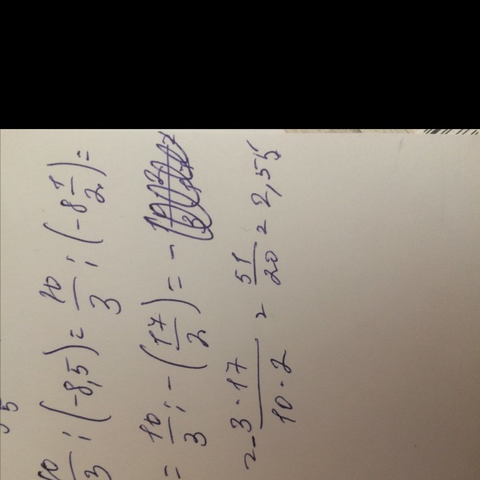 5
10/3 : (-8,5) = 10/3 : (-8 1/2) =
= 10/3 : -(17/2) = -
= - 3·17/10·2 = 51/20 = 2,55